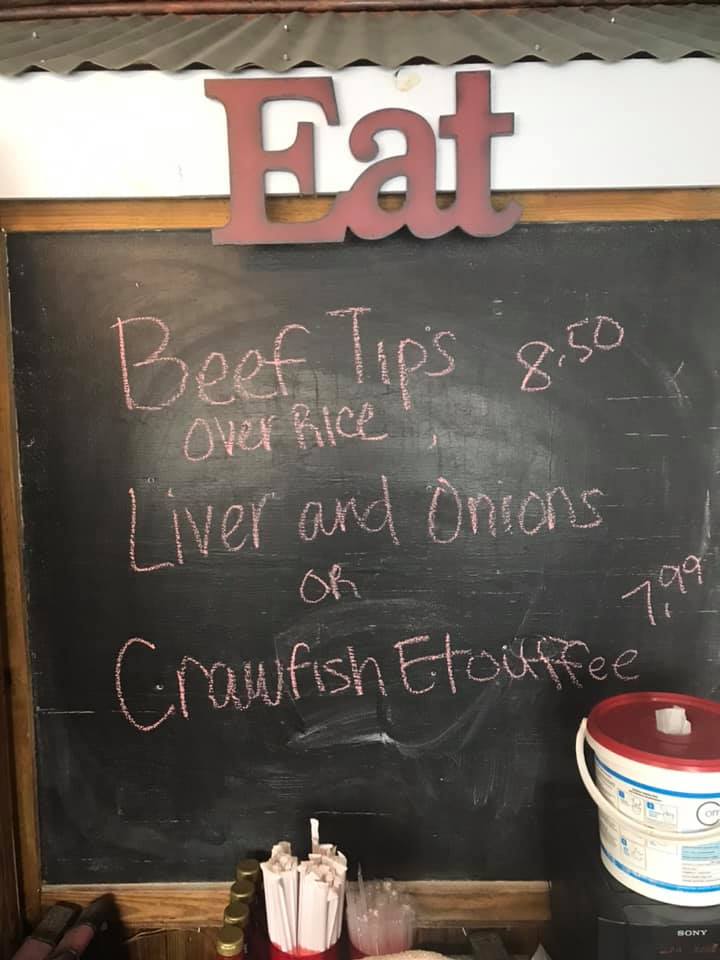 Eat
Beef Tips 8.50
over Rice,
Liver and Onions
OR
7.99
Crawfish Etouffee
SONY